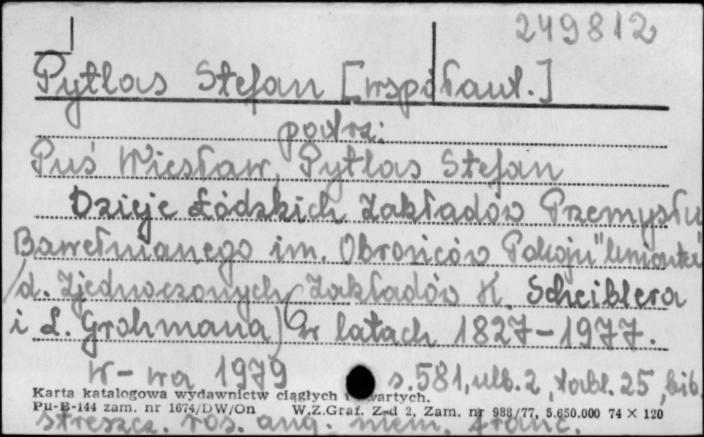 249812
Pytlas Stefan [współaut.]
patrz:
Puś Wiesław, Pytlas Stefan
Dzieje Łódzkich Zakładów Przemysłu
Bawełnianego im. Obrońców Pokoju "Uniontex"
/d. Zjednoczonych Zakładów K. Scheiblera
i L. Grohmana) w latach 1827-1977.
W-wa 1979 s. 581, ulb. 2, tabl. 25, bib.
Karta katalogowa wydawnictw ciągłych i zwartych.
Pu-B-144 zam. nr 1674/DW/On W.Z.Graf. Z-d 2, Zam. nr 988/77, 5.650.000 74 × 120
streszcz. ros. ang. niem. franc.